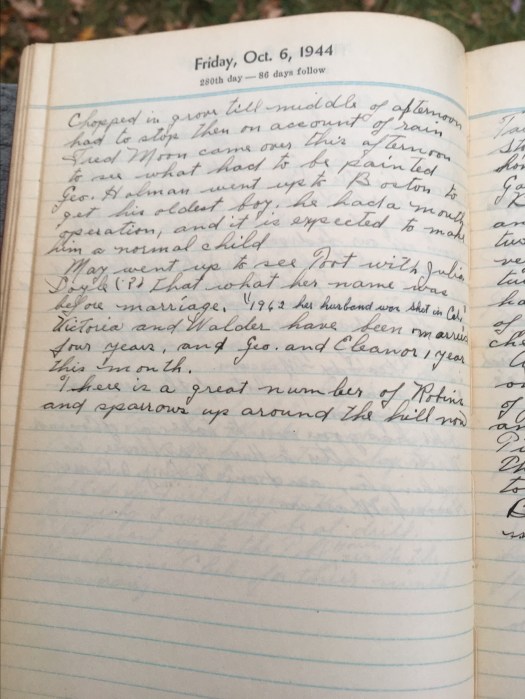 Friday, Oct. 6, 1944
280th day — 86 days follow
Chopped in grove till middle of afternoon
had to stop then on account of rain
Fred Moon came over this afternoon
to see what had to be painted
Geo. Holman went up to Boston to
get his oldest boy. he had a mouth
operation, and it is expected to make
him a normal child
May went up to see Toot with Julia
Doyle (?) That what her name was
before marriage. 1962 her husband was shot in
Victoria and Walder have been married
four years, and Geo. and Eleanor 1 year
this month.
There is a great number of Robins
and sparrows up around the hill now